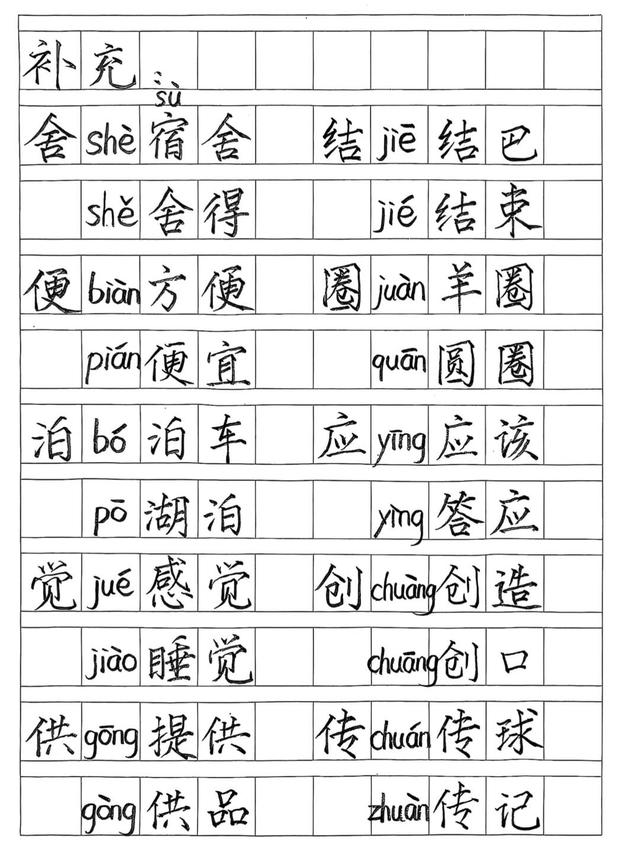 补充:
sù
舍 shè 宿舍 结 jiē 结巴
shě 舍得 jié 结束
便 biàn 方便 圈 juàn 羊圈
pián 便宜 quān 圆圈
泊 bó 泊车 应 yīng 应该
pō 湖泊 yìng 答应
觉 jué 感觉 创 chuàng 创造
jiào 睡觉 chuāng 创口
供 gōng 提供 传 chuán 传球
gòng 供品 zhuàn 传记